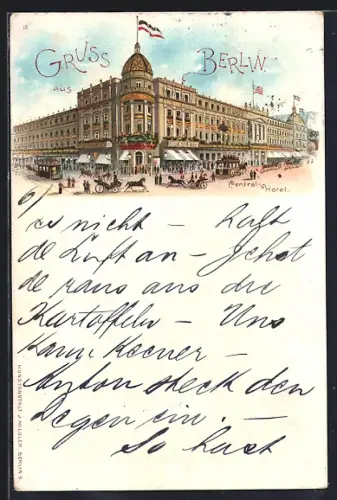 GRUSS
aus
BERLIN.
Central-Hotel.
6/
es nicht – halt
de Luft an – Jehst
de raus aus die
Kartoffeln – Uns
kann keener –
Anton steck den
Degen ein. –
So hast
KUNSTANSTALT J. MIESLER, BERLIN S.